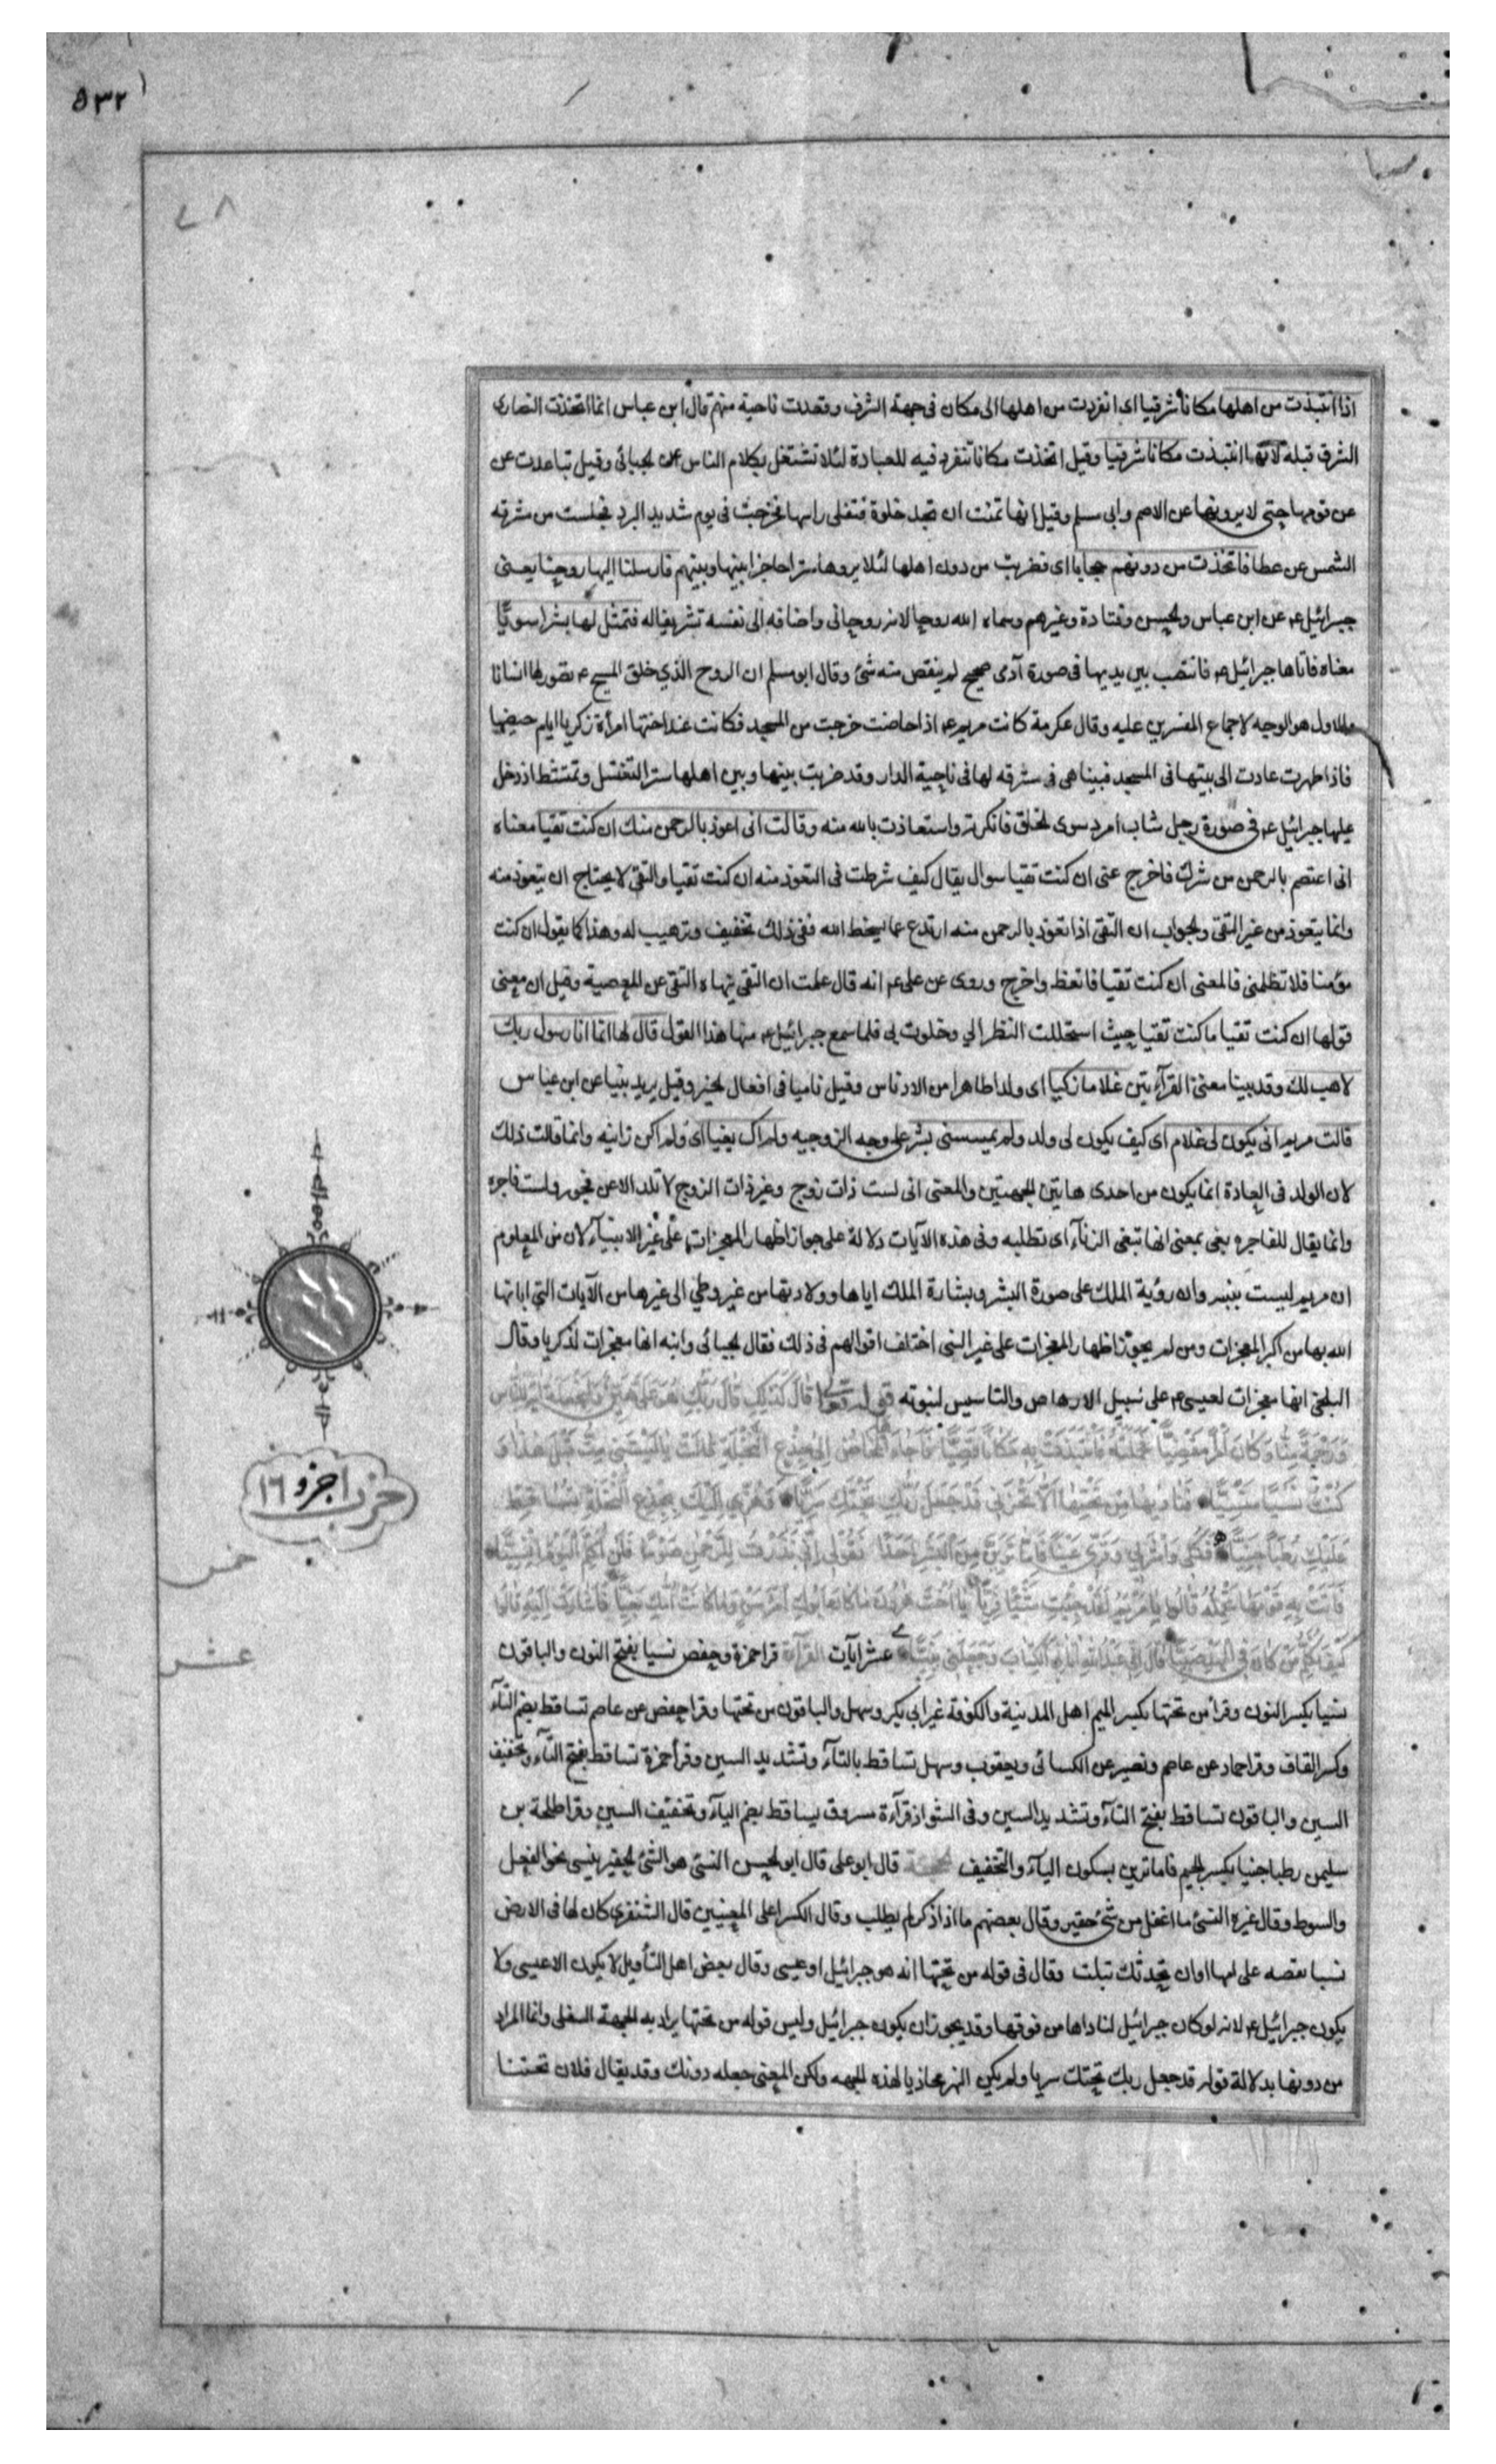 ٥٣٢
٧٨
اذا انتبذت من اهلها مكانا شرقيا اى انفردت من اهلها الى مكان فى جهة الشرق وقعدت ناحية منهم قال ابن عباس انما اتخذت النصارى
الشرق قبلة لانها انتبذت مكانا شرقيا وقيل اتخذت مكانا تنفرد فيه للعبادة لئلا تشتغل بكلام الناس عن الجبائى وقيل تباعدت عن
عن قومها حتى لا يرونها عن الاصم وابى مسلم وقيل انها تمنت ان تجد خلوة فتفلى راسها فخرجت فى يوم شديد البرد فجلست من مشرقه
الشمس عن عطا فاتخذت من دونهم حجابا اى فضربت من دون اهلها لئلا يروها سترا حاجزا بينها وبينهم فارسلنا اليها روحنا يعنى
جبرائيل ع عن ابن عباس والحسن وقتادة وغيرهم وسماه الله روحا لانه روحانى واضافه الى نفسه تشريفا له فتمثل لها بشرا سويا
معناه فاتاها جبرائيل ع فانتصب بين يديها فى صورة آدمى صحيح لم ينقص منه شئ وقال ابو مسلم ان الروح الذي خلق المسيح ع تصور لها انسانا
والاول هو الوجه لاجماع المفسرين عليه وقال عكرمة كانت مريم ع اذا حاضت خرجت من المسجد فكانت عند اختها امرأة زكريا ايام حيضها
فاذا طهرت عادت الى بيتها فى المسجد فبينا هى فى مشرقه لها فى ناحية الدار وقد ضربت بينها وبين اهلها سترا لتغتسل وتمتشط اذ دخل
عليها جبرائيل ع فى صورة رجل شاب امرد سوى الخلق فانكرته واستعاذت بالله منه وقالت انى اعوذ بالرحمن منك ان كنت تقيا معناه
انى اعتصم بالرحمن من شرك فاخرج عنى ان كنت تقيا سوال يقال كيف شرطت فى التعوذ منه ان كنت تقيا والتقى لا يحتاج ان يتعوذ منه
وانما يتعوذ من غير التقى والجواب ان التقى اذا تعوذ بالرحمن منه ارتدع عما يسخط الله ففى ذلك تخفيف وترهيب له وهذا كما يقول ان كنت
مؤمنا فلا تظلمنى فالمعنى ان كنت تقيا فاتعظ واخرج وروى عن على ع انه قال علمت ان التقى ينهاه التقى عن المعصية وقيل ان معنى
قولها ان كنت تقيا ما كنت تقيا حيث استحللت النظر الي وخلوت بى فلما سمع جبرائيل ع منها هذا القول قال لها انما انا رسول ربك
لاهب لك وقد بينا معنى القرآءتين غلاما زكيا اى ولدا طاهرا من الادناس وقيل ناميا فى افعال الخير وقيل يريد نبيا عن ابن عباس
قالت مريم انى يكون لى غلام اى كيف يكون لى ولد ولم يمسسنى بشر على وجه الزوجيه ولم اك بغيا اى ولم اكن زانيه وانما قالت ذلك
لان الولد فى العادة انما يكون من احدى هاتين الجهتين والمعنى انى لست ذات زوج وغير ذات الزوج لا تلد الا عن فجور ولست فاجره
وانما يقال للفاجره بغى بمعنى انها تبغى الزنآء اى تطلبه وفى هذه الآيات دلالة على جواز اظهار المعجزات على غير الانبيآء لان من المعلوم
ان مريم ليست بنبيه وان رؤية الملك على صورة البشر وبشارة الملك اياها وولادتها من غير وطي الى غيرها من الآيات التى ابانها
الله بها من اكبر المعجزات ومن لم يجوز اظهار المعجزات على غير النبى اختلف اقوالهم فى ذلك فقال الجبائى وابنه انها معجزات لذكريا وقال
البلخى انها معجزات لعيسى ع على سبيل الارهاص والتاسيس لنبوته قوله تعالى قَالَ كَذَلِكِ قَالَ رَبُّكِ هُوَ عَلَيَّ هَيِّنٌ وَلِنَجْعَلَهُ آيَةً لِلنَّاسِ
وَرَحْمَةً مِنَّا وَكَانَ أَمْرًا مَقْضِيًّا فَحَمَلَتْهُ فَانْتَبَذَتْ بِهِ مَكَانًا قَصِيًّا فَأَجَاءَهَا الْمَخَاضُ إِلَى جِذْعِ النَّخْلَةِ قَالَتْ يَا لَيْتَنِي مِتُّ قَبْلَ هَذَا وَ
كُنْتُ نَسْيًا مَنْسِيًّا فَنَادَيهَا مِنْ تَحْتِهَا أَلَّا تَحْزَنِي قَدْ جَعَلَ رَبُّكِ تَحْتَكِ سَرِيًّا وَهُزِّي إِلَيْكِ بِجِذْعِ النَّخْلَةِ تُسَاقِطْ
عَلَيْكِ رُطَبًا جَنِيًّا فَكُلِي وَاشْرَبِي وَقَرِّي عَيْنًا فَإِمَّا تَرَيِنَّ مِنَ الْبَشَرِ أَحَدًا فَقُولِي إِنِّي نَذَرْتُ لِلرَّحْمَنِ صَوْمًا فَلَنْ أُكَلِّمَ الْيَوْمَ إِنْسِيًّا
فَأَتَتْ بِهِ قَوْمَهَا تَحْمِلُهُ قَالُوا يَا مَرْيَمُ لَقَدْ جِئْتِ شَيْئًا فَرِيًّا يَا أُخْتَ هَرُونَ مَا كَانَ أَبُوكِ امْرَأَ سَوْءٍ وَمَا كَانَتْ أُمُّكِ بَغِيًّا فَأَشَارَتْ إِلَيْهِ قَالُوا
كَيْفَ نُكَلِّمُ مَنْ كَانَ فِي الْمَهْدِ صَبِيًّا قَالَ إِنِّي عَبْدُ اللَّهِ آتَانِيَ الْكِتَابَ وَجَعَلَنِي نَبِيًّا عشر آيات القرآءة قرا حمزة وحفص نسيا بفتح النون والباقون
نسيا بكسر النون وقرأ من تحتها بكسر الميم اهل المدينة والكوفة غير ابى بكر وسهل والباقون من تحتها وقرا حفص عن عاصم تساقط بضم التآء
وكسر القاف وقرا حماد عن عاصم ونصير عن الكسائى ويعقوب وسهل تساقط بالتآء وتشديد السين وقرأ حمزة تساقط بفتح التآء وتخفيف
السين والباقون تساقط بفتح التآء وتشديد السين وفى الشواذ قرآءة مسروق يساقط بضم اليآء وتخفيف السين وقرا طلحة بن
سليمن رطبا جنيا بكسر الجيم فاما ترين بسكون اليآء والتخفيف الحجة قال ابو على قال ابو الحسن النسئ هو الشئ الحقير ينسى نحو النعل
والسوط وقال غيره النسئ ما اغفل من شئ حقير وقال بعضهم ما اذا ذكر لم يطلب وقال الكسر اعلى المعنيين قال الشنفرى كان لها فى الارض
نسيا تقصه على امها وان تحدثك تبلت وقال فى قوله من تحتها انه هو جبرائيل او عيسى وقال بعض اهل التأويل لا يكون الا عيسى ولا
يكون جبرائيل ع لانه لو كان جبرائيل لناداها من فوقها وقد يجوز ان يكون جبرائيل وليس قوله من تحتها يراد به الجهة السفلى وانما المراد
من دونها بدلالة قوله قد جعل ربك تحتك سريا ولم يكن النهر محاذيا لهذه الجهه ولكن المعنى جعله دونك وقد يقال فلان تحتنا
حزب اجزو ١٦
خمس
عشر